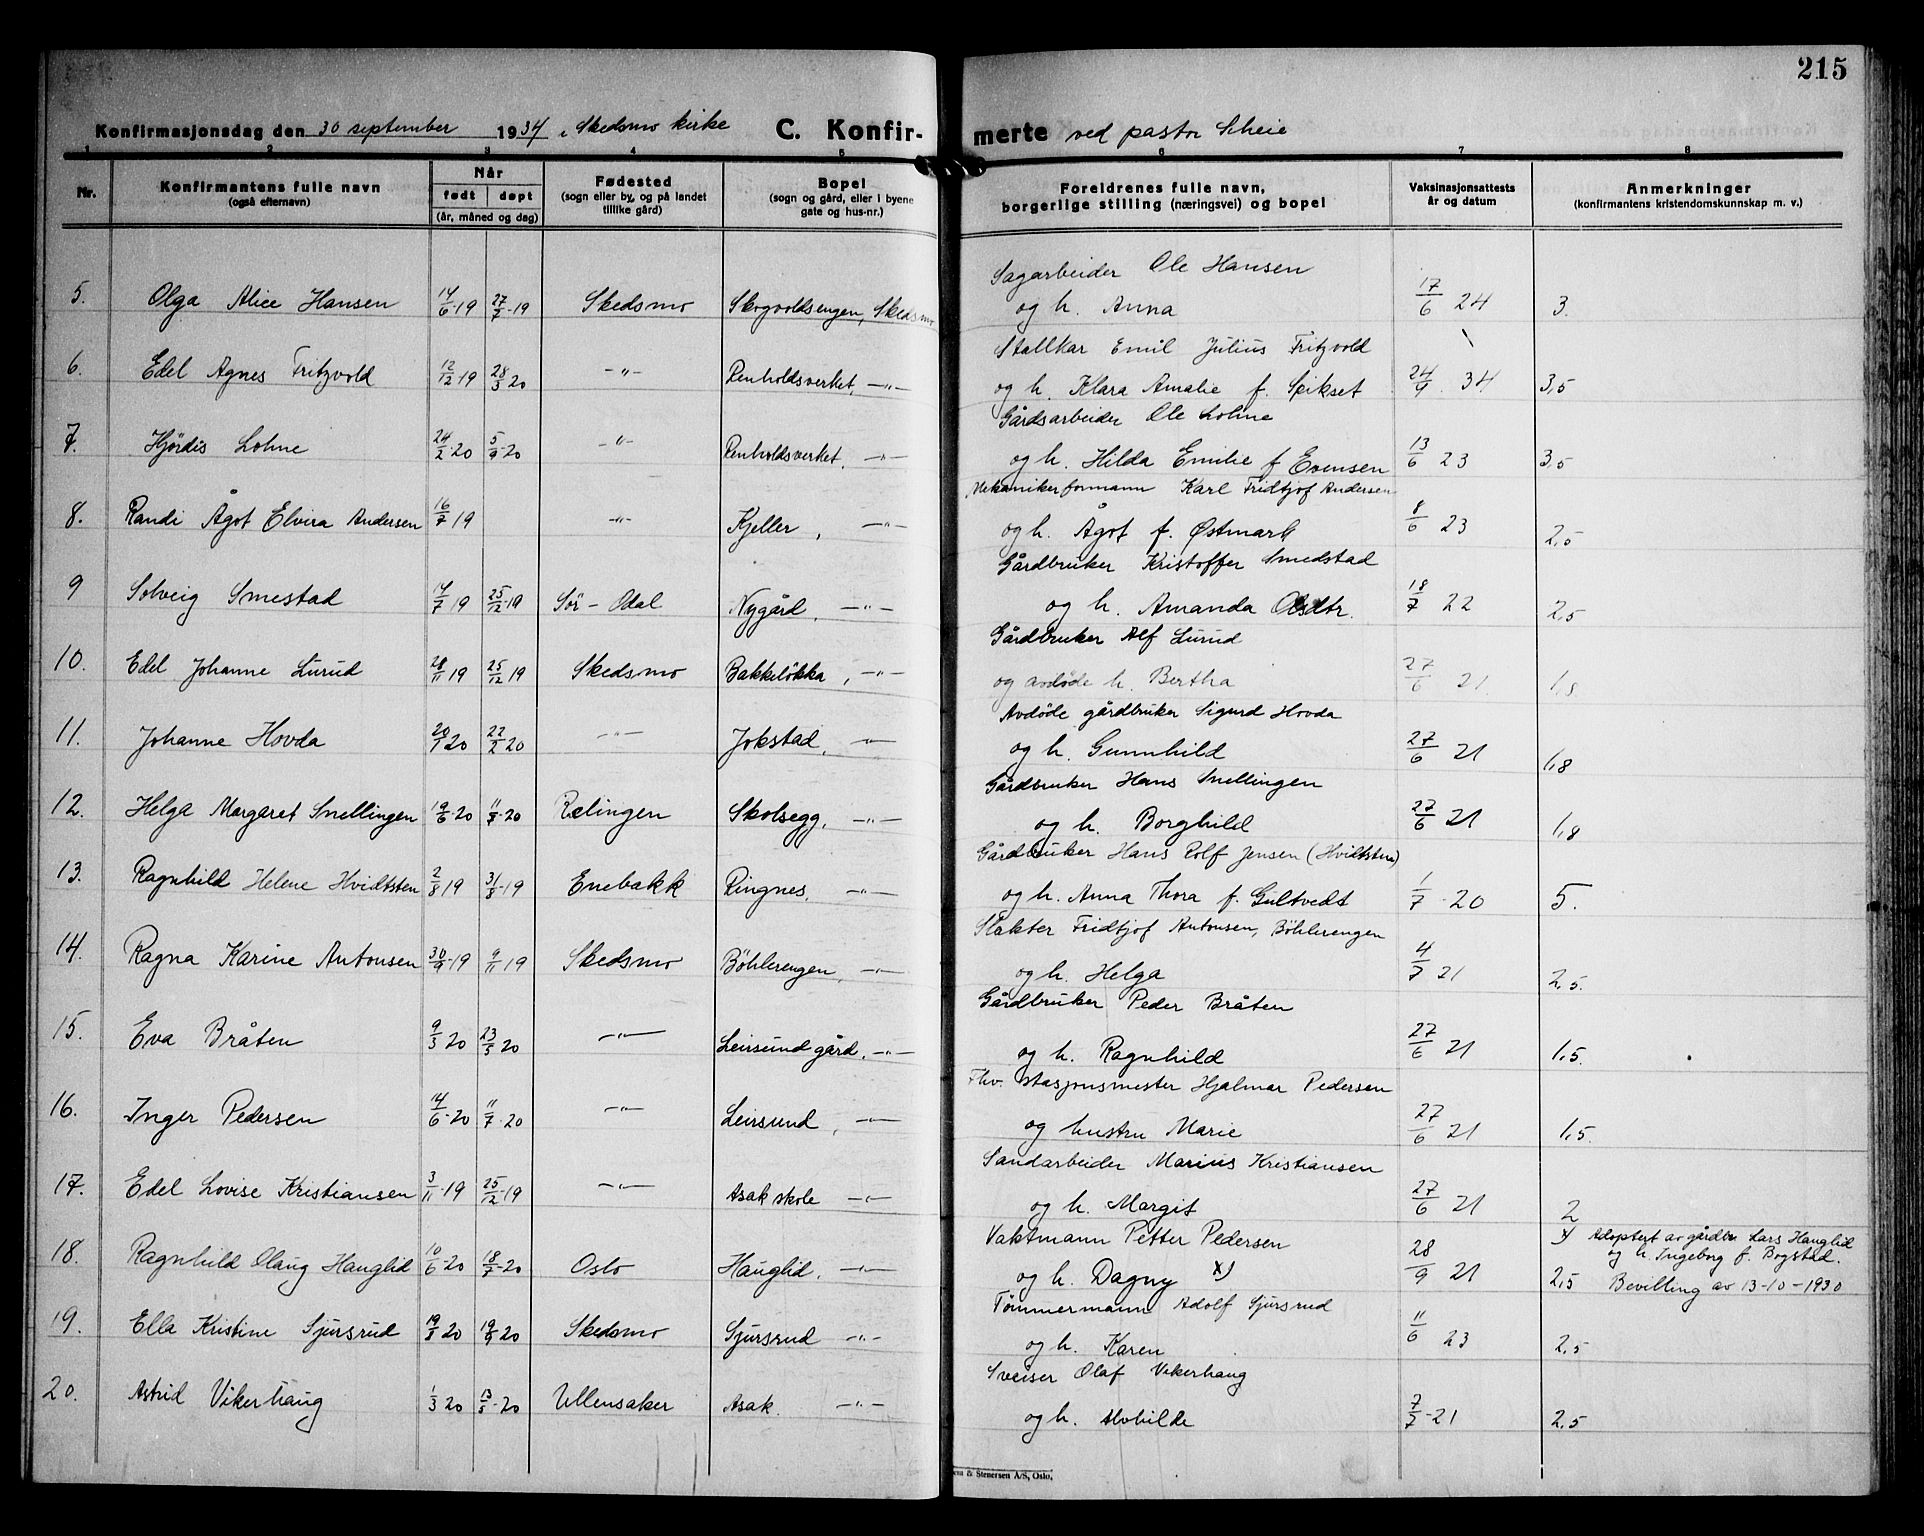 215
Konfirmasjonsdag den 30 september 1934 i Skedsmo kirke C. Konfir- merte ved pastor Scheie
1 2 3 4 5 6 7 8
Nr. Konfirmantens fulle navn (også efternavn) Når født døpt (år, måned og dag) Fødested (sogn eller by, og på landet tillike gård) Bopel (sogn og gård, eller i byene gate og hus-nr.) Foreldrenes fulle navn, borgerlige stilling (næringsvei) og bopel Vaksinasjonsattests år og datum Anmerkninger (konfirmantens kristendomskunnskap m. v.)
Sagarbeider Ole Hansen
5. Olga Alice Hansen 14/6-19 27/7-19 Skedsmo Skogvoldsengen, Skedsmo og h. Anna 17/6 24 3.
Stallkar Emil Julius Fritzvold
6. Edel Agnes Fritzvold 12/12 19 28/3 20 -"- Renholdsverket, -"- og h. Klara Amalie f. Spikset 24/9 34 3,5
Gårdsarbeider Ole Lohne
7. Hjördis Lohne 24/2-20 5/9-20 -"- Renholdsverket, -"- og h. Hilda Emilie f Evensen 13/6 23 3,5
Mekanikerformann Karl Fridtjof Andersen
8. Randi Ågot Elvira Andersen 16/7 19 -"- Kjeller, -"- og h. Ågot f. Østmark 8/6 23 2,5
Gårdbruker Kristoffer Smedstad
9 Solveig Smestad 14/7 19 25/12-19 Sör-Odal Nygård, -"- og h. Amanda Olsdtr. 18/7 22 2,5
Gårdbruker Alf Lurud
10. Edel Johanne Lurud 28/11 19 25/12 19 Skedsmo Bakkeløkka, -"- og avdøde h. Bertha 27/6 21. 1,8
Avdøde gårdbruker Sigurd Hovda
11. Johanne Hovda 20/1 20 22/2 20 -"- Jokstad, -"- og h. Gunnhild 27/6 21 1,8
Gårdbruker Hans Snellingen
12. Helga Margaret Snellingen 19/6-20 11/7-20 Rælingen Skolsegg, -"- og h. Borghild 27/6 21 1,8
Gårdbruker Hans Rolf Jensen (Hvidtsten)
13. Ragnhild Helene Hvidtsten 2/8 19 31/8-19 Enebakk Ringnes, -"- og h. Anna Thora f. Gultvedt 1/7-20 5.
Slakter Fridtjof Antonsen, Böhlerengen
14. Ragna Karine Antonsen 30/9-19 9/11 19 Skedsmo Böhlerengen, -"- og h. Helga 4/7 21 2,5.
Gårdbruker Peder Bråten
15. Eva Bråten 9/3 20 23/5 20 -"- Leirsund gård, -"- og h. Ragnhild 27/6 21 1,5.
Fhv. stasjonsmester Hjalmar Pedersen
16. Inger Pedersen 14/6-20 11/7-20 -"- Leirsund, -"- og hustru Marie 27/6 21 1,5.
Sandarbeider Marius Kristiansen
17. Edel Lovise Kristiansen 3/11-19 25/12-19 -"- Asak skole -"- og h. Margit 27/6 21 2
Vaktmann Petter Pedersen x) Adoptert av gårdbr. Lars Hauglid
og h. Ingeborg f. Bogstad.
18. Ragnhild Olaug Hauglid 10/6-20 18/7-20 Oslo Hauglid, -"- og h. Dagny x) 28/9 21 2,5 Bevilling av 13-10-1930
Tömmermann Adolf Sjursrud
19. Ella Kristine Sjursrud 19/5 20 19/9-20 Skedsmo Sjursrud -"- og h. Karen 11/6 23 2,5
Sveiser Olaf Vikerhaug
20. Astrid Vikerhaug 1/3 20 13/5-20 Ullensaker Asak. -"- og h. Alvhilde 7/7-21 2,5
& Stenersen A/S, Oslo.